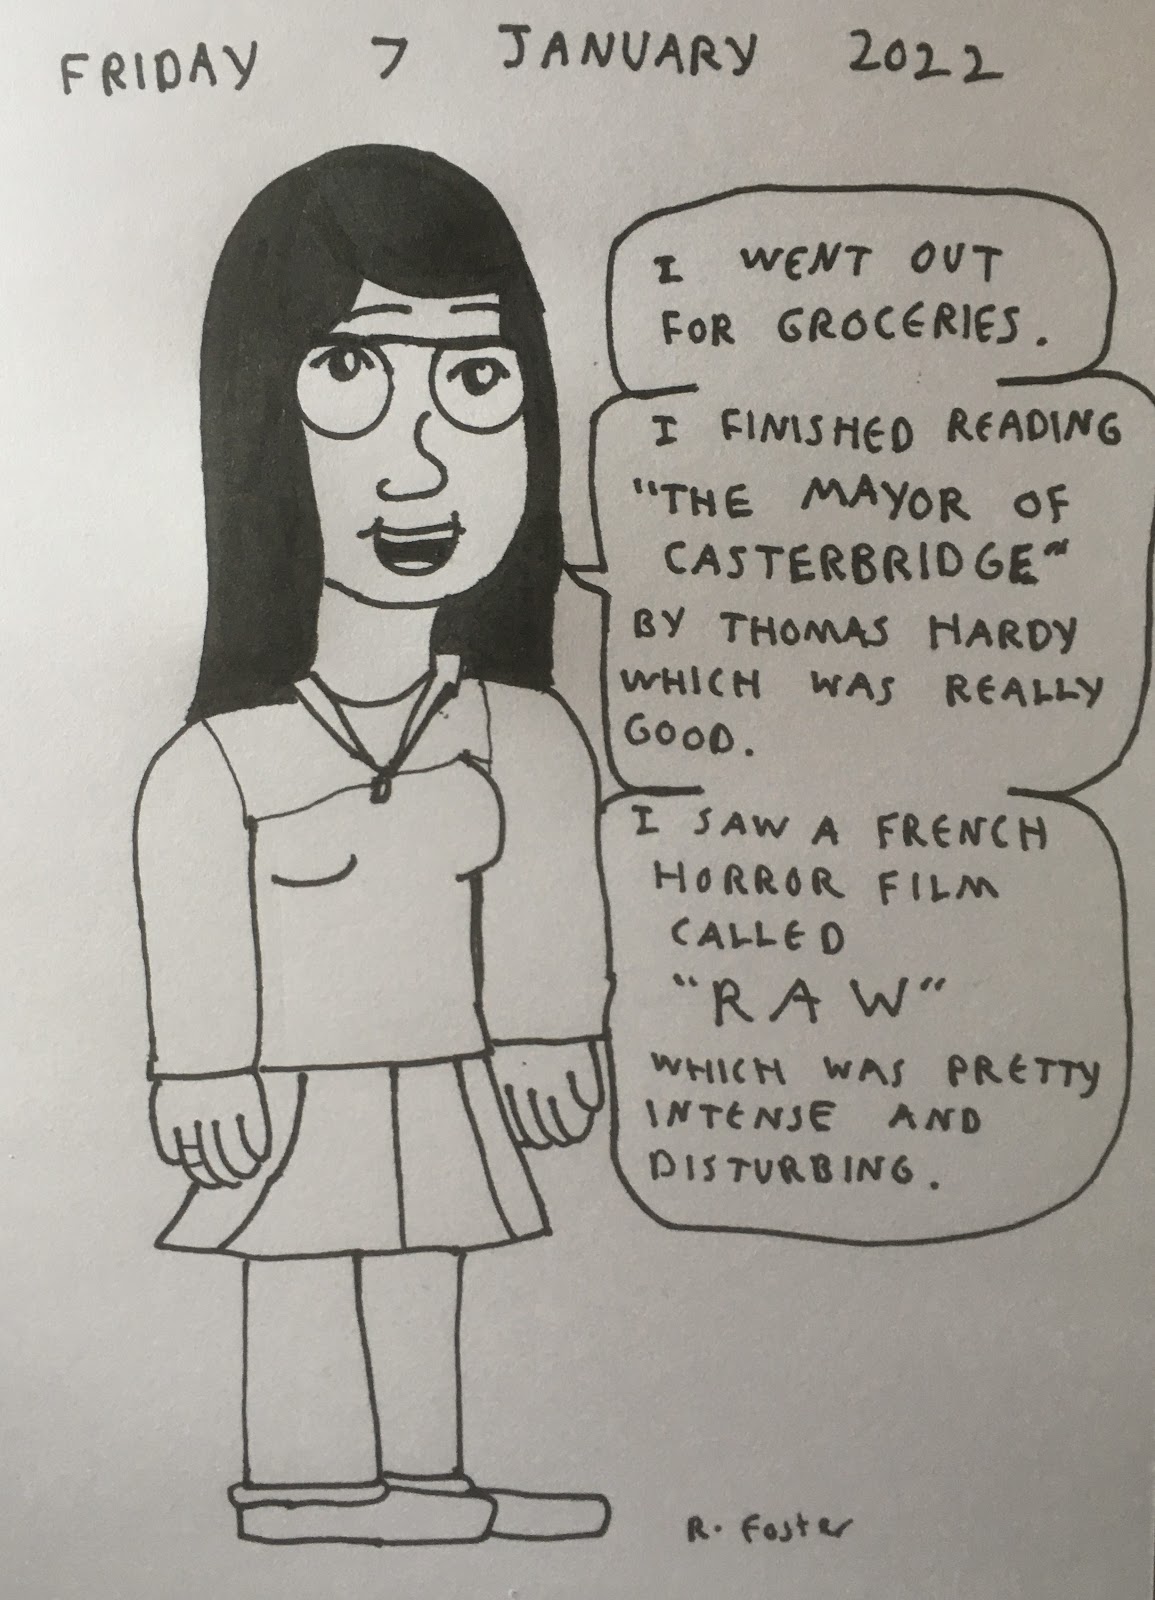 FRIDAY 7 JANUARY 2022
I WENT OUT
FOR GROCERIES.
I FINISHED READING
"THE MAYOR OF
CASTERBRIDGE"
BY THOMAS HARDY
WHICH WAS REALLY
GOOD.
I SAW A FRENCH
HORROR FILM
CALLED
"RAW"
WHICH WAS PRETTY
INTENSE AND
DISTURBING.
R. Foster